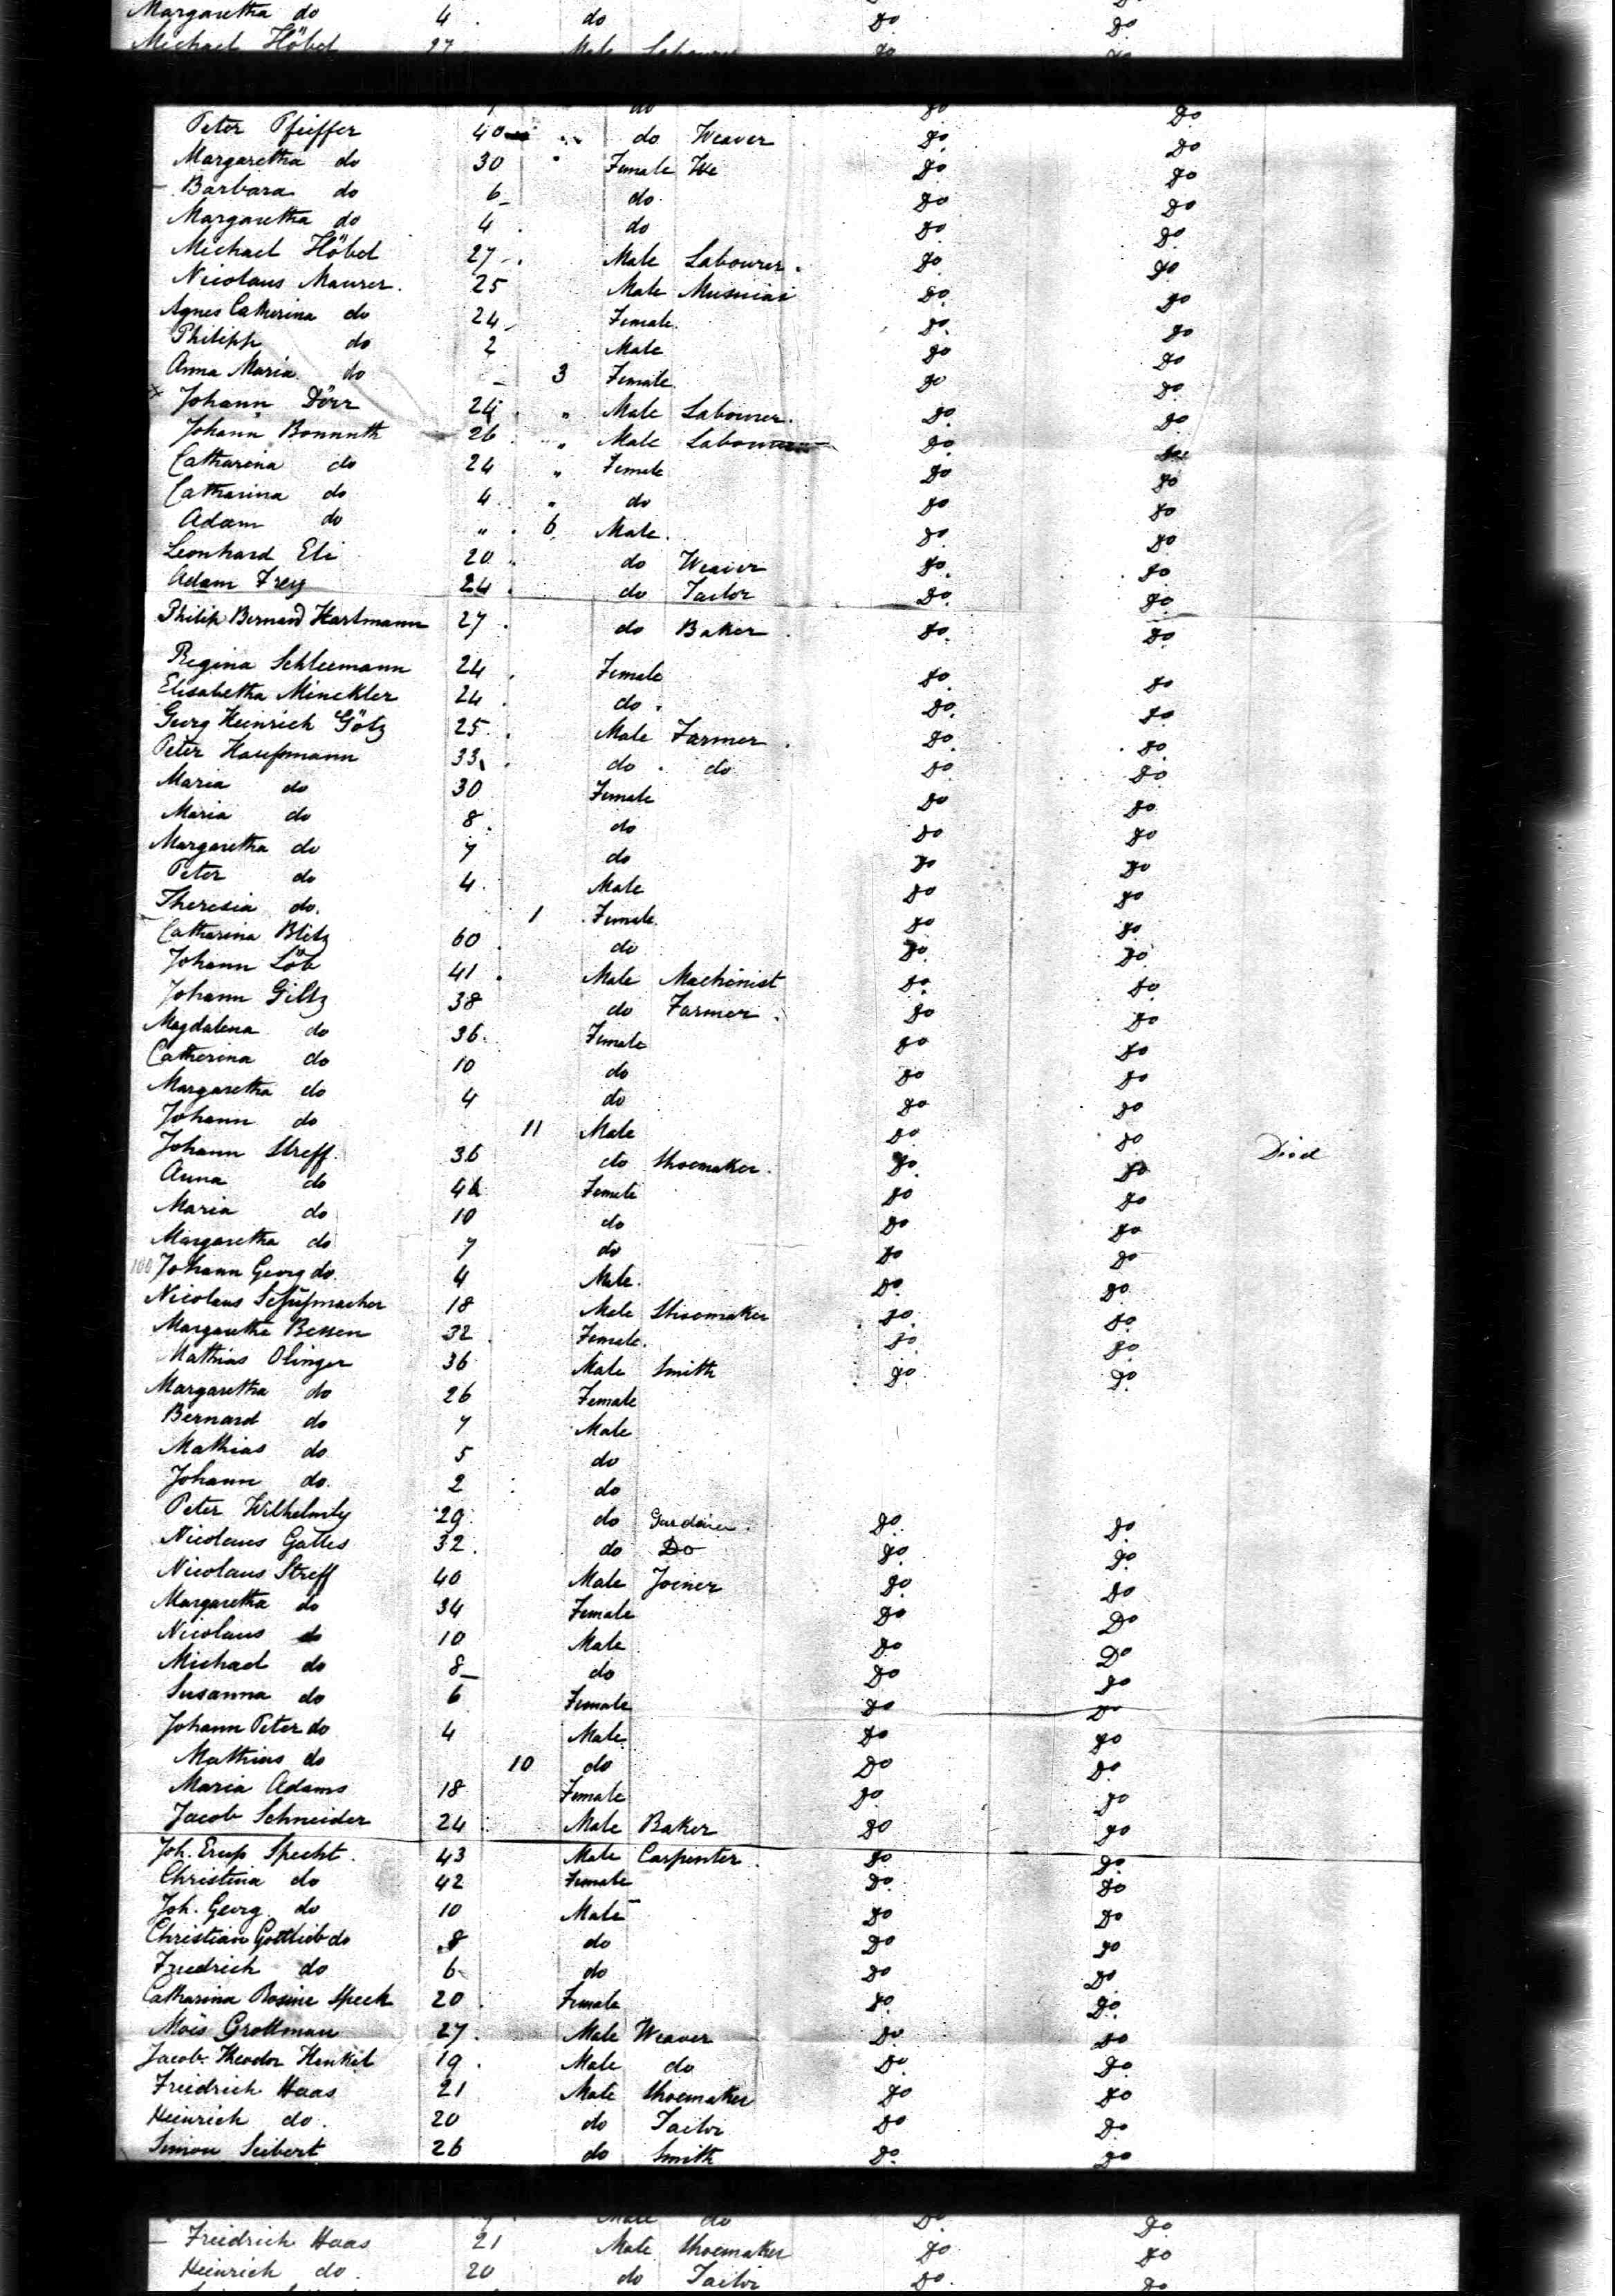 Margaretha do 4 do Do Do
Michael Höbel 27 Male Labourer Do Do
do Do Do
Peter Pfeiffer 40 do Weaver Do Do
Margaretha do 30 Female Do Do
Barbara do 6 do Do Do
Margaretha do 4 do Do Do
Michael Höbel 27 Male Labourer Do Do
Nicolaus Maurer 25 Male Musician Do Do
Agnes Catherina do 24 Female Do Do
Philipp do 2 Male Do Do
Anna Maria do 3 Female Do Do
Johann Dörr 24 " Male Labourer Do Do
Johann Bonnuth 26 " Male Labourer Do Do
Catharina do 24 " Female Do Do
Catharina do 4 " do Do Do
Adam do " 6 Male Do Do
Leonhard Eli 20 do Weaver Do Do
Adam Frey 24 do Tailor Do Do
Philip Bernard Hartmann 27 do Baker Do Do
Regina Schleemann 24 Female Do Do
Elisabetha Minckler 24 do Do Do
Georg Heinrich Götz 25 Male Farmer Do Do
Peter Haußmann 33 do do Do Do
Maria do 30 Female Do Do
Maria do 8 do Do Do
Margaretha do 7 do Do Do
Peter do 4 Male Do Do
Theresia do 1 Female Do Do
Catharina Bletz 60 do Do Do
Johann Löb 41 Male Machinist Do Do
Johann Giltz 38 do Farmer Do Do
Magdalena do 36 Female Do Do
Catherina do 10 do Do Do
Margaretha do 4 do Do Do
Johann do 11 Male Do Do Died
Johann Streff 36 do Shoemaker Do Do
Anna do 46 Female Do Do
Maria do 10 do Do Do
Margaretha do 7 do Do Do
100 Johann Georg do 4 Male Do Do
Nicolaus Schußmacher 18 Male Shoemaker Do Do
Margaretha Bessen 32 Female Do Do
Mathias Olinger 36 Male Smith Do Do
Margaretha do 26 Female
Bernard do 7 Male
Mathias do 5 do
Johann do 2 do
Peter Wilhelmly 29 do Gardener Do Do
Nicolaus Galles 32 do Do Do Do
Nicolaus Streff 40 Male Joiner Do Do
Margaretha do 34 Female Do Do
Nicolaus do 10 Male Do Do
Michael do 8 do Do Do
Susanna do 6 Female Do Do
Johann Peter do 4 Male Do Do
Mathias do 10 do Do Do
Maria Adams 18 Female Do Do
Jacob Schneider 24 Male Baker Do Do
Joh. Specht 43 Male Carpenter Do Do
Christina do 42 Female Do Do
Joh. Georg do 10 Male Do Do
Christian Gottlieb do 8 do Do Do
Friedrich do 6 do Do Do
Catharina Rosine Speck 20 Female Do Do
Mois Grottman 27 Male Weaver Do Do
Jacob Theodor Henkel 19 Male do Do Do
Friedrich Haas 21 Male Shoemaker Do Do
Heinrich do 20 do Tailor Do Do
Simon Seibert 26 do Smith Do Do
Male do Do Do
Friedrich Haas 21 Male Shoemaker Do Do
Heinrich do 20 do Tailor Do Do